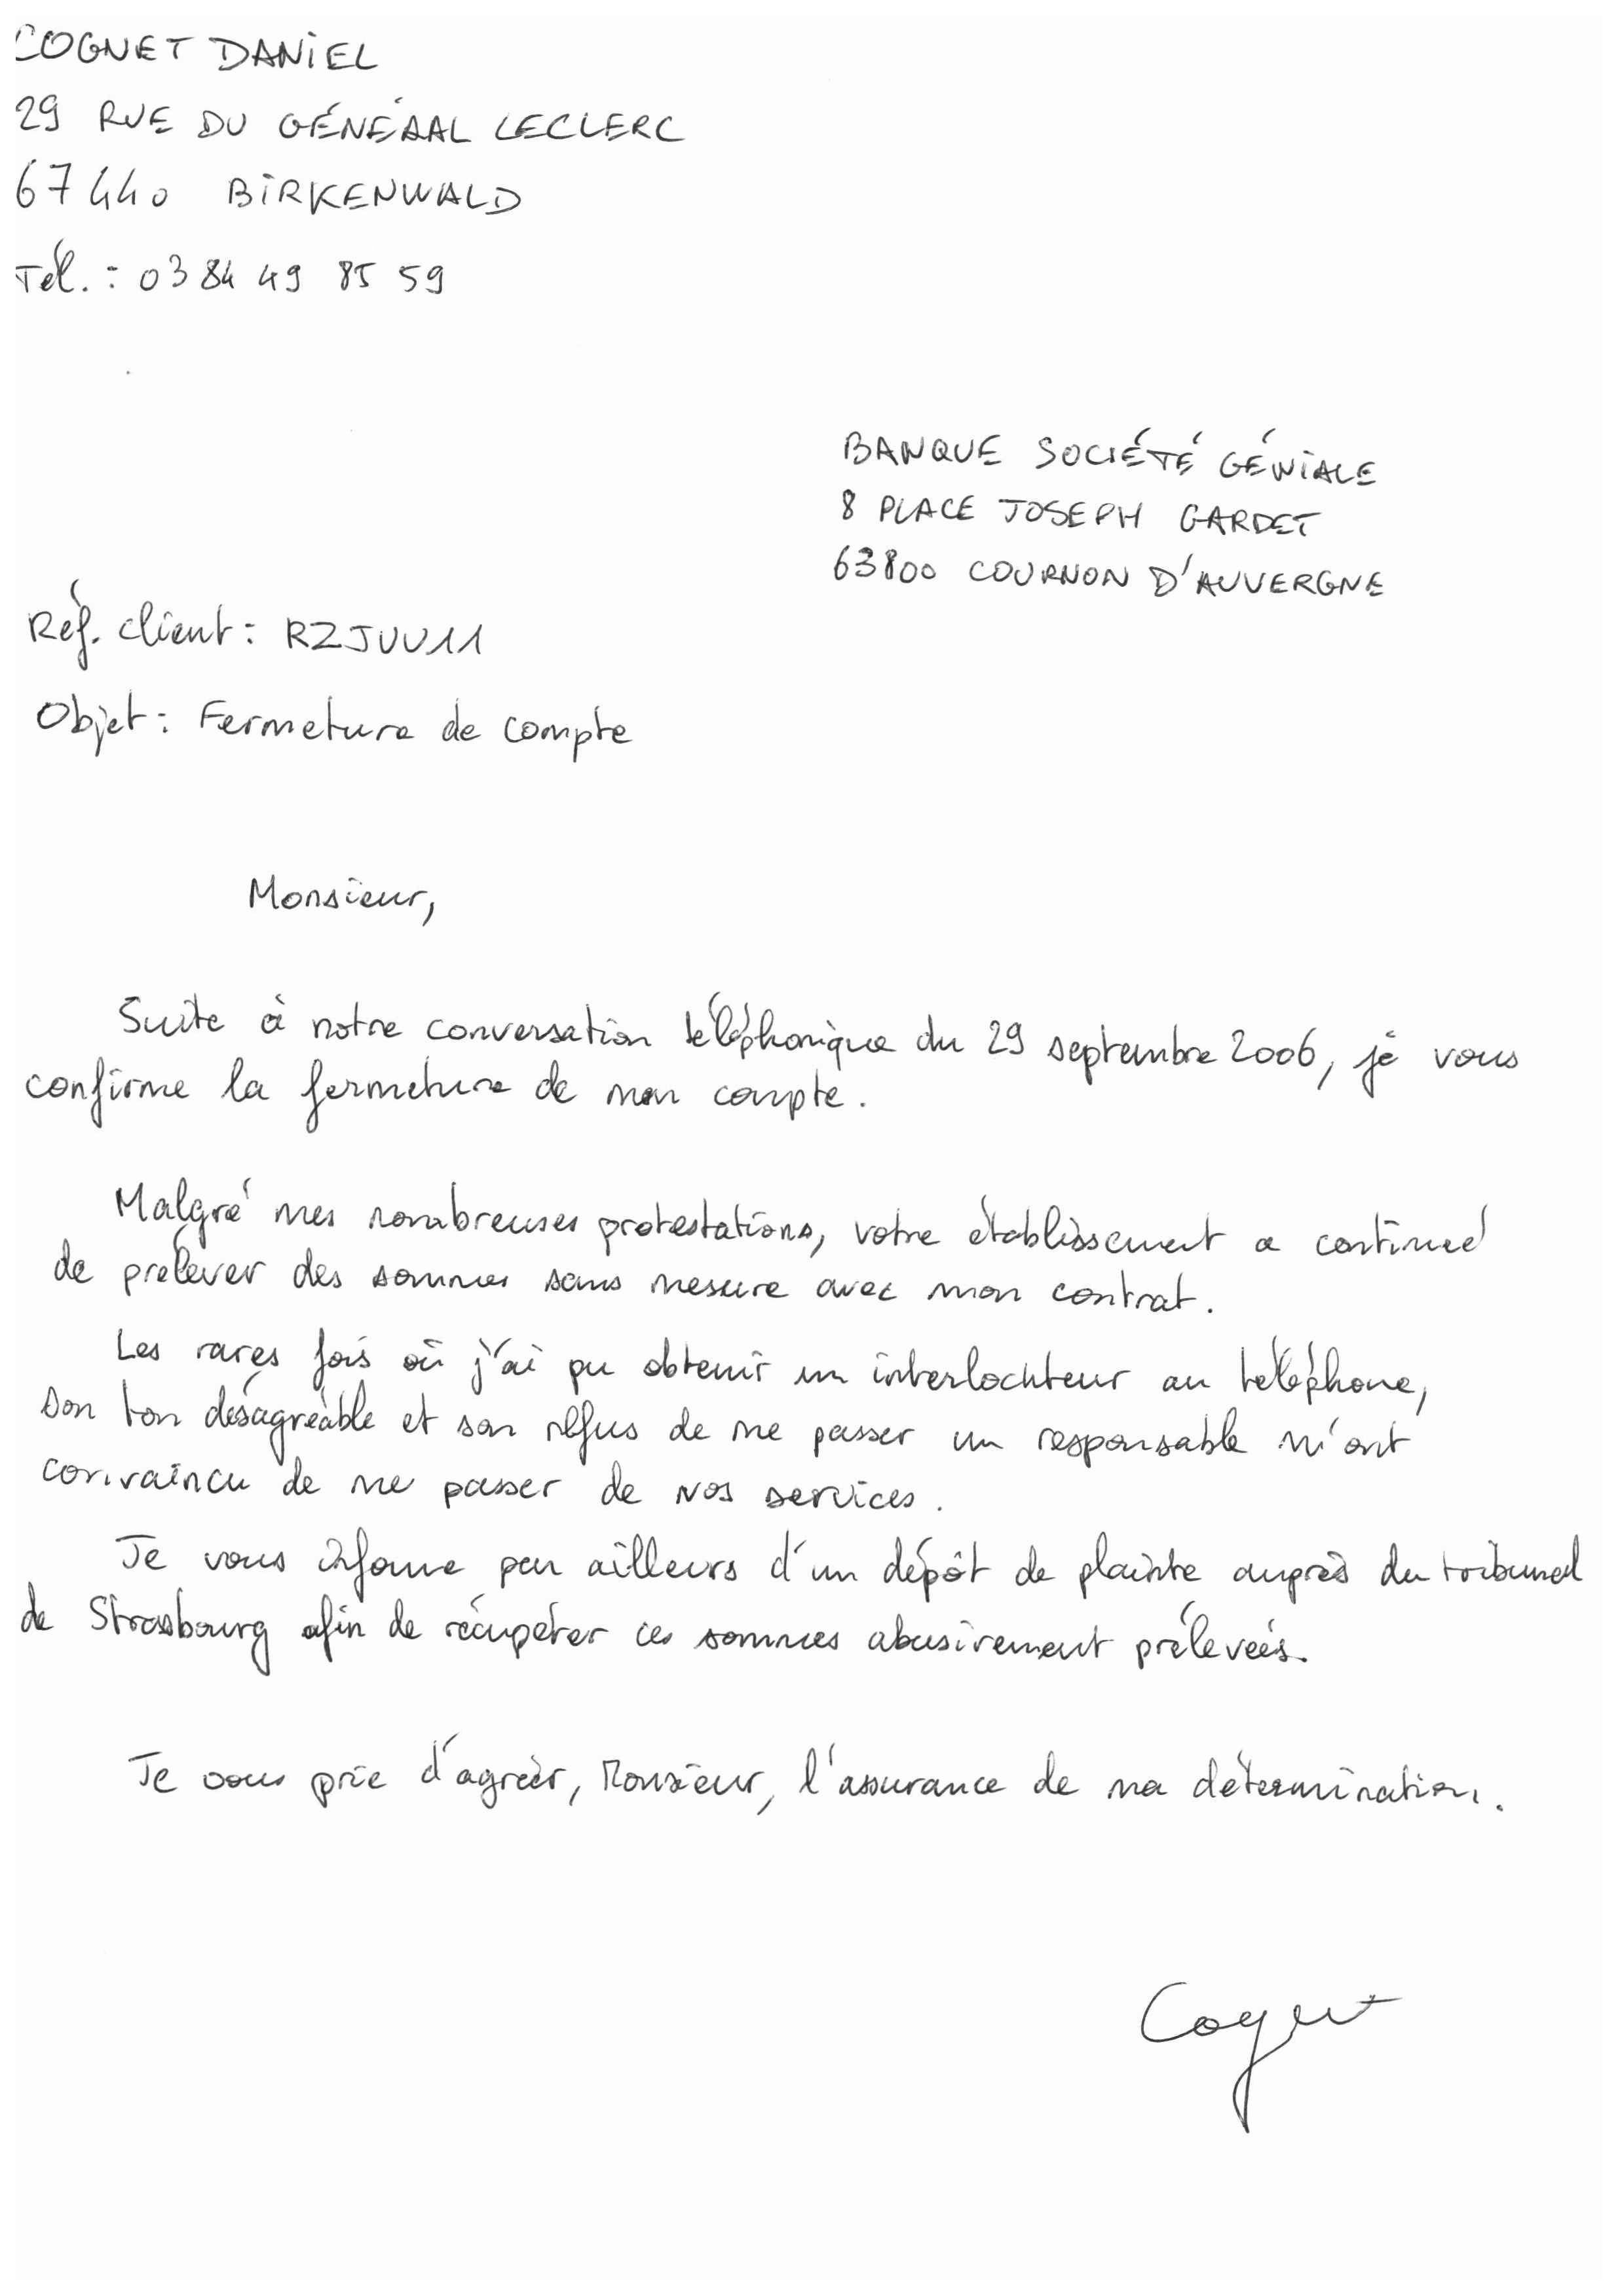 COGNET DANIEL
29 RUE DU GÉNÉRAL LECLERC
67440 BIRKENWALD
Tél. : 03 84 49 85 59
BANQUE SOCIÉTÉ GÉNIALE
8 PLACE JOSEPH GARDET
63800 COURNON D'AUVERGNE
Réf. client : RZJUV11
Objet : Fermeture de compte
Monsieur,
Suite à notre conversation téléphonique du 29 septembre 2006, je vous
confirme la fermeture de mon compte.
Malgré mes nombreuses protestations, votre établissement a continué
de prélever des sommes sans mesure avec mon contrat.
Les rares fois où j'ai pu obtenir un interlochteur au téléphone,
son ton désagréable et son refus de me passer un responsable m'ont
convaincu de me passer de vos services.
Je vous informe par ailleurs d'un dépôt de plainte auprès du tribunal
de Strasbourg afin de récupérer ces sommes abusivement prélevées.
Je vous prie d'agréer, Monsieur, l'assurance de ma détermination.
Cognet